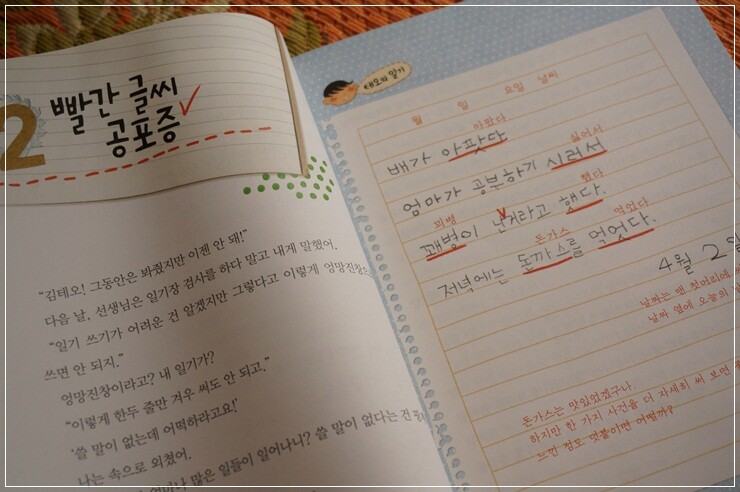 2
빨간 글씨
공포증
"김태오! 그동안은 봐줬지만 이젠 안 돼!"
다음 날, 선생님은 일기장 검사를 하다 말고 내게 말했어.
"일기 쓰기가 어려운 건 알겠지만 그렇다고 이렇게 엉망진창으
쓰면 안 되지."
엉망진창이라고? 내 일기가?
"이렇게 한두 줄만 겨우 써도 안 되고."
'쓸 말이 없는데 어떡하라고요!'
나는 속으로 외쳤어.
많은 일들이 일어나니? 쓸 말이 없다는 건
태오의 일기
월 일 요일 날씨
아팠다
배가 아팟다
싫어서
엄마가 공부하기 시러서
꾀병 했다
꽤병이 난거라고 햇다.
돈가스 먹었다
저녁에는 돈까스를 먹엇다.
4월 2일
날짜는 맨 첫머리에
날짜 옆에 오늘의
돈가스는 맛있었겠구나.
하지만 한 가지 사건을 더 자세히 써 보면
느낀 점도 덧붙이면 어떨까?